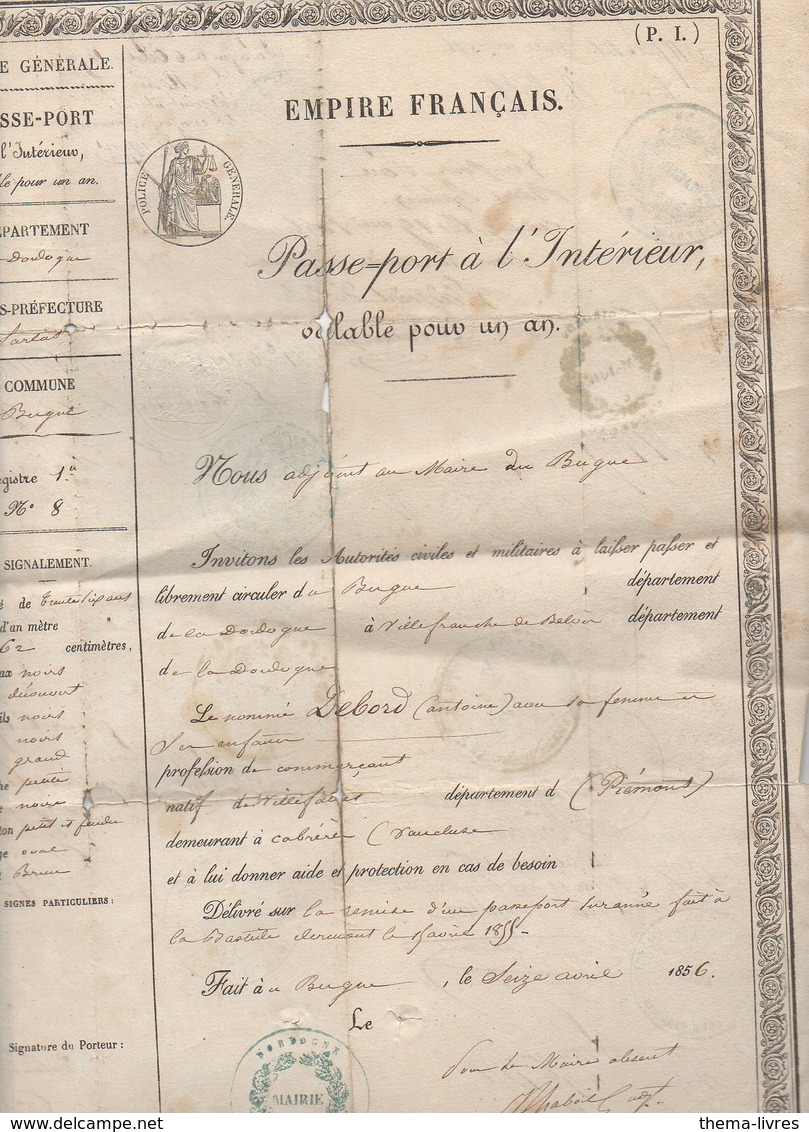 (P. I.)
E GÉNÉRALE.
SSE-PORT
l'Intérieur,
le pour un an.
ÉPARTEMENT
Dordogne
S-PRÉFECTURE
Sarlat
COMMUNE
Bugue
egistre 1er
N° 8
SIGNALEMENT.
é de trente six ans
d'un mètre
62 centimètres,
ux noirs
découvert
ils noirs
noirs
grand
he petite
e noire
ton petit et fendu
ge oval
Brun
SIGNES PARTICULIERS:
Signature du Porteur:
EMPIRE FRANÇAIS.
POLICE GÉNÉRALE.
Passe-port à l'Intérieur,
valable pour un an.
Nous adjoint au Maire du Bugue
Invitons les Autorités civiles et militaires à laisser passer et
librement circuler du Bugue département
de la Dordogne à Villefranche de Belvès département
de la Dordogne
Le nommé Debord (antoine) avec sa femme et
ses enfans
profession de commerçant
natif de Villefalet département d (Piémont)
demeurant à cabrère (vaucluse
et à lui donner aide et protection en cas de besoin
Délivré sur la remise d'un passeport suranné fait à
la Bastide clermont le avril 1855
Fait à u Bugue, le Seize avril 1856.
Le
Pour le Maire absent
DORDOGNE
MAIRIE
delcampe.net
thema-livres